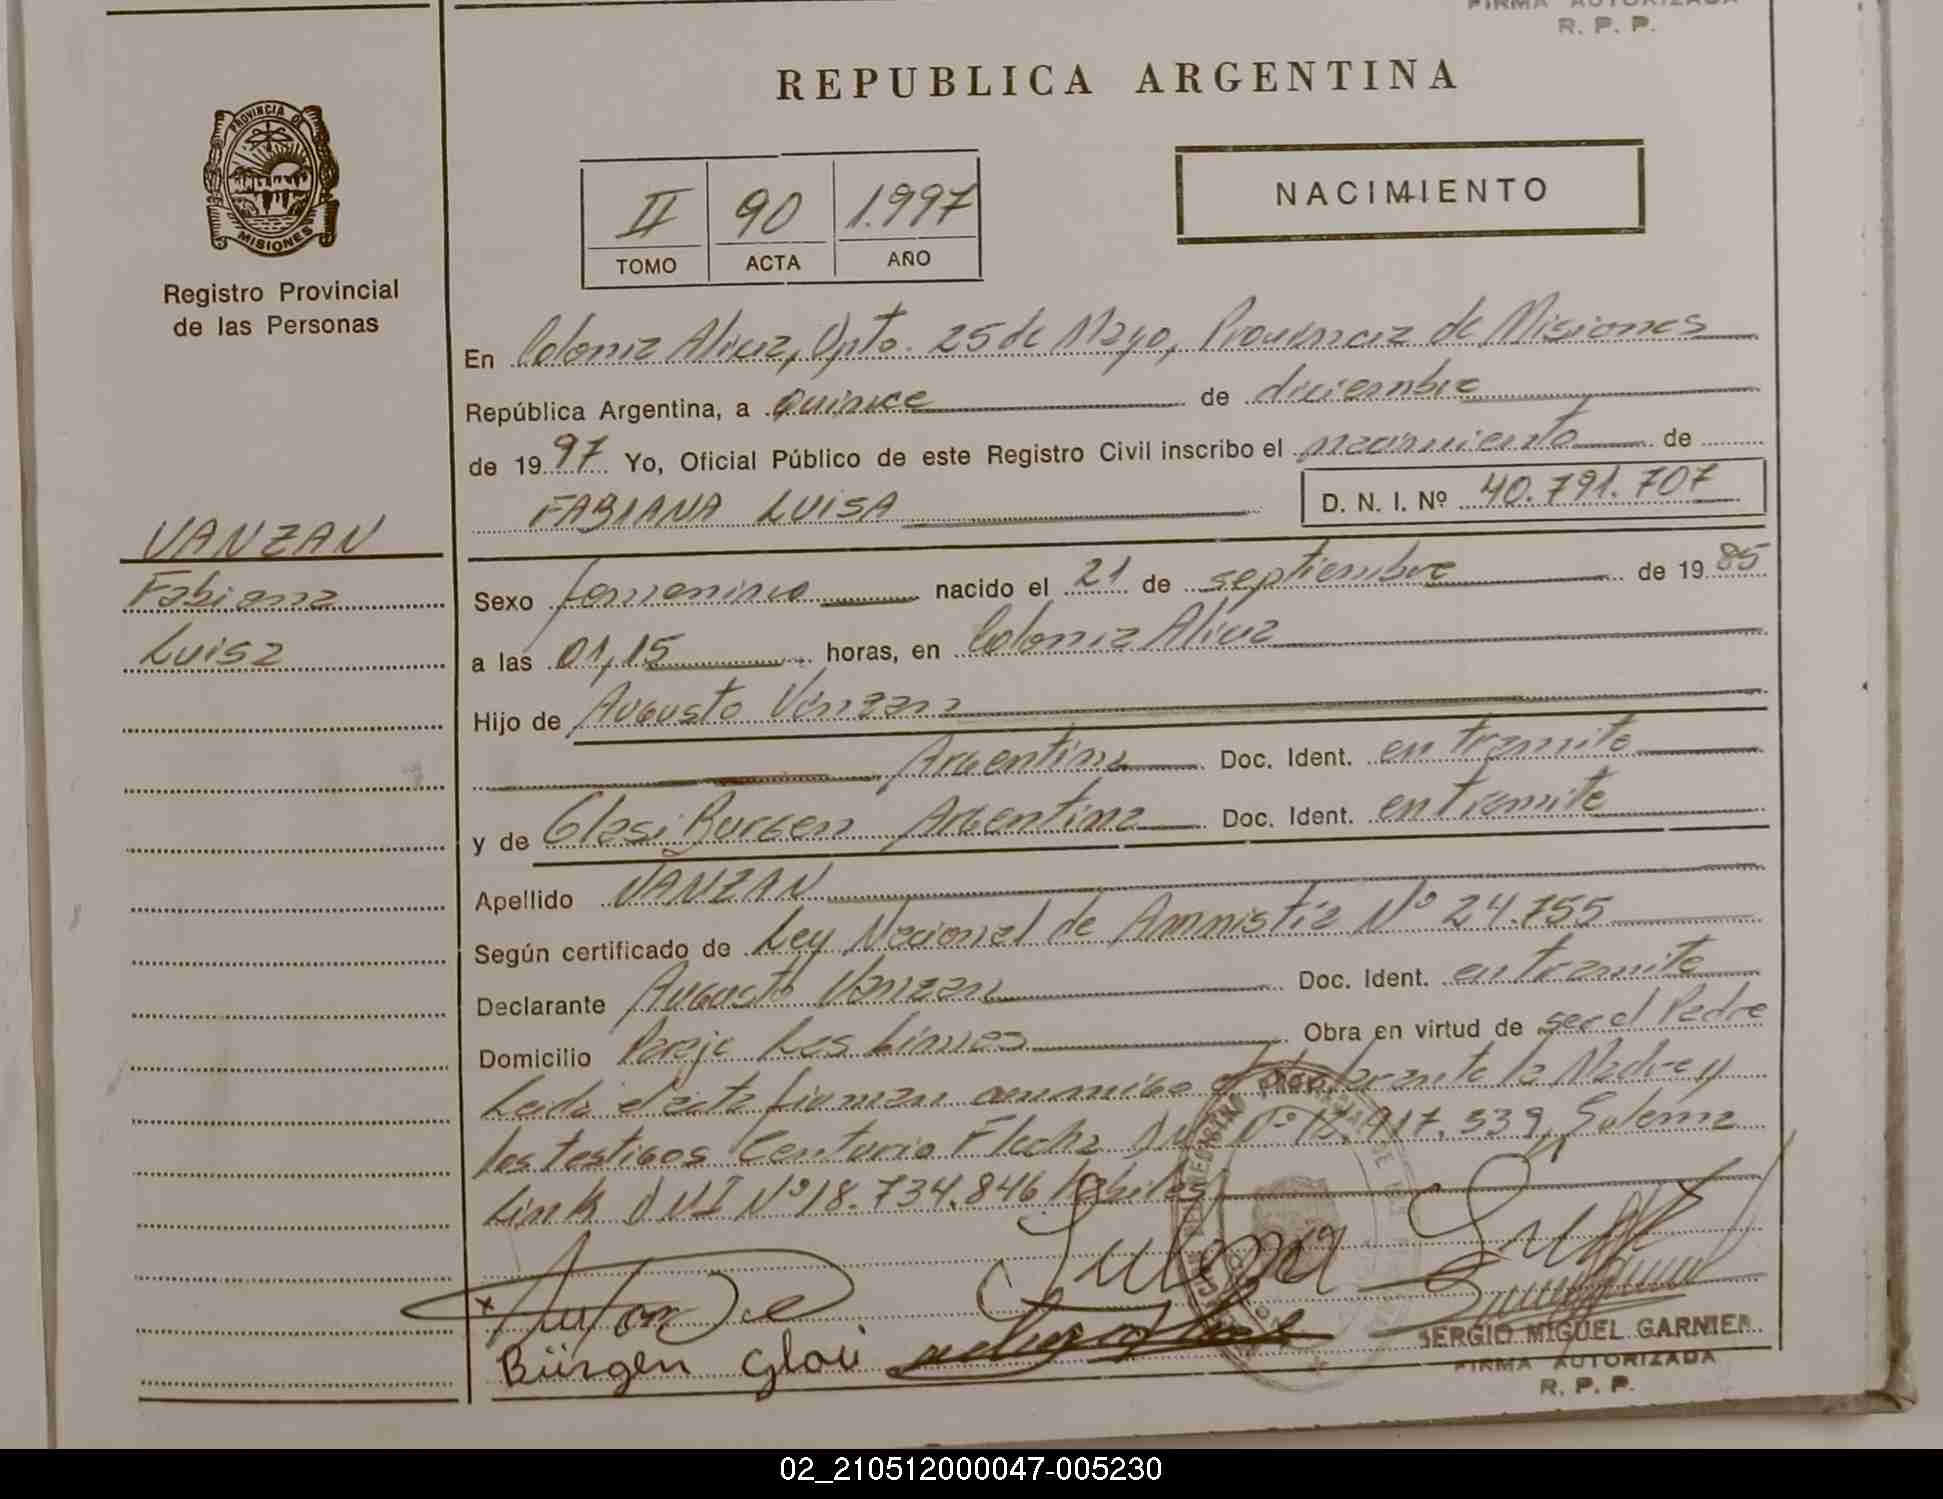 FIRMA AUTORIZADA
R. P. P.
REPUBLICA ARGENTINA
PROVINCIA DE
MISIONES
Registro Provincial
de las Personas
II 90 1.997
TOMO ACTA AÑO
NACIMIENTO
En Colonia Alicia, Dpto. 25 de Mayo, Provincia de Misiones
República Argentina, a quince de diciembre
de 1997 Yo, Oficial Público de este Registro Civil inscribo el nacimiento de
FABIANA LUISA D. N. I. Nº 40.791.707
VANZAN
Fabiana
Luisa
Sexo femenino nacido el 21 de septiembre de 1985
a las 01,15 horas, en Colonia Alicia
Hijo de Augusto Vanzan
Argentina Doc. Ident. en tramite
y de Glasi Burgen Argentina Doc. Ident. en tramite
Apellido VANZAN
Según certificado de Ley Nacional de Amnistía Nº 24.755
Declarante Augusto Vanzan Doc. Ident. en tramite
Domicilio Paraje Las Limas Obra en virtud de ser el Padre
Leida el acta firman conmigo el declarante la Madre y
los testigos Centurio Flecha Nº 18.917.539, Sulema
Link DNI Nº 18.734.846 habiles
Sulema Link
Bürgen Glaci
SERGIO MIGUEL GARNIER
FIRMA AUTORIZADA
R. P. P.
02_210512000047-005230